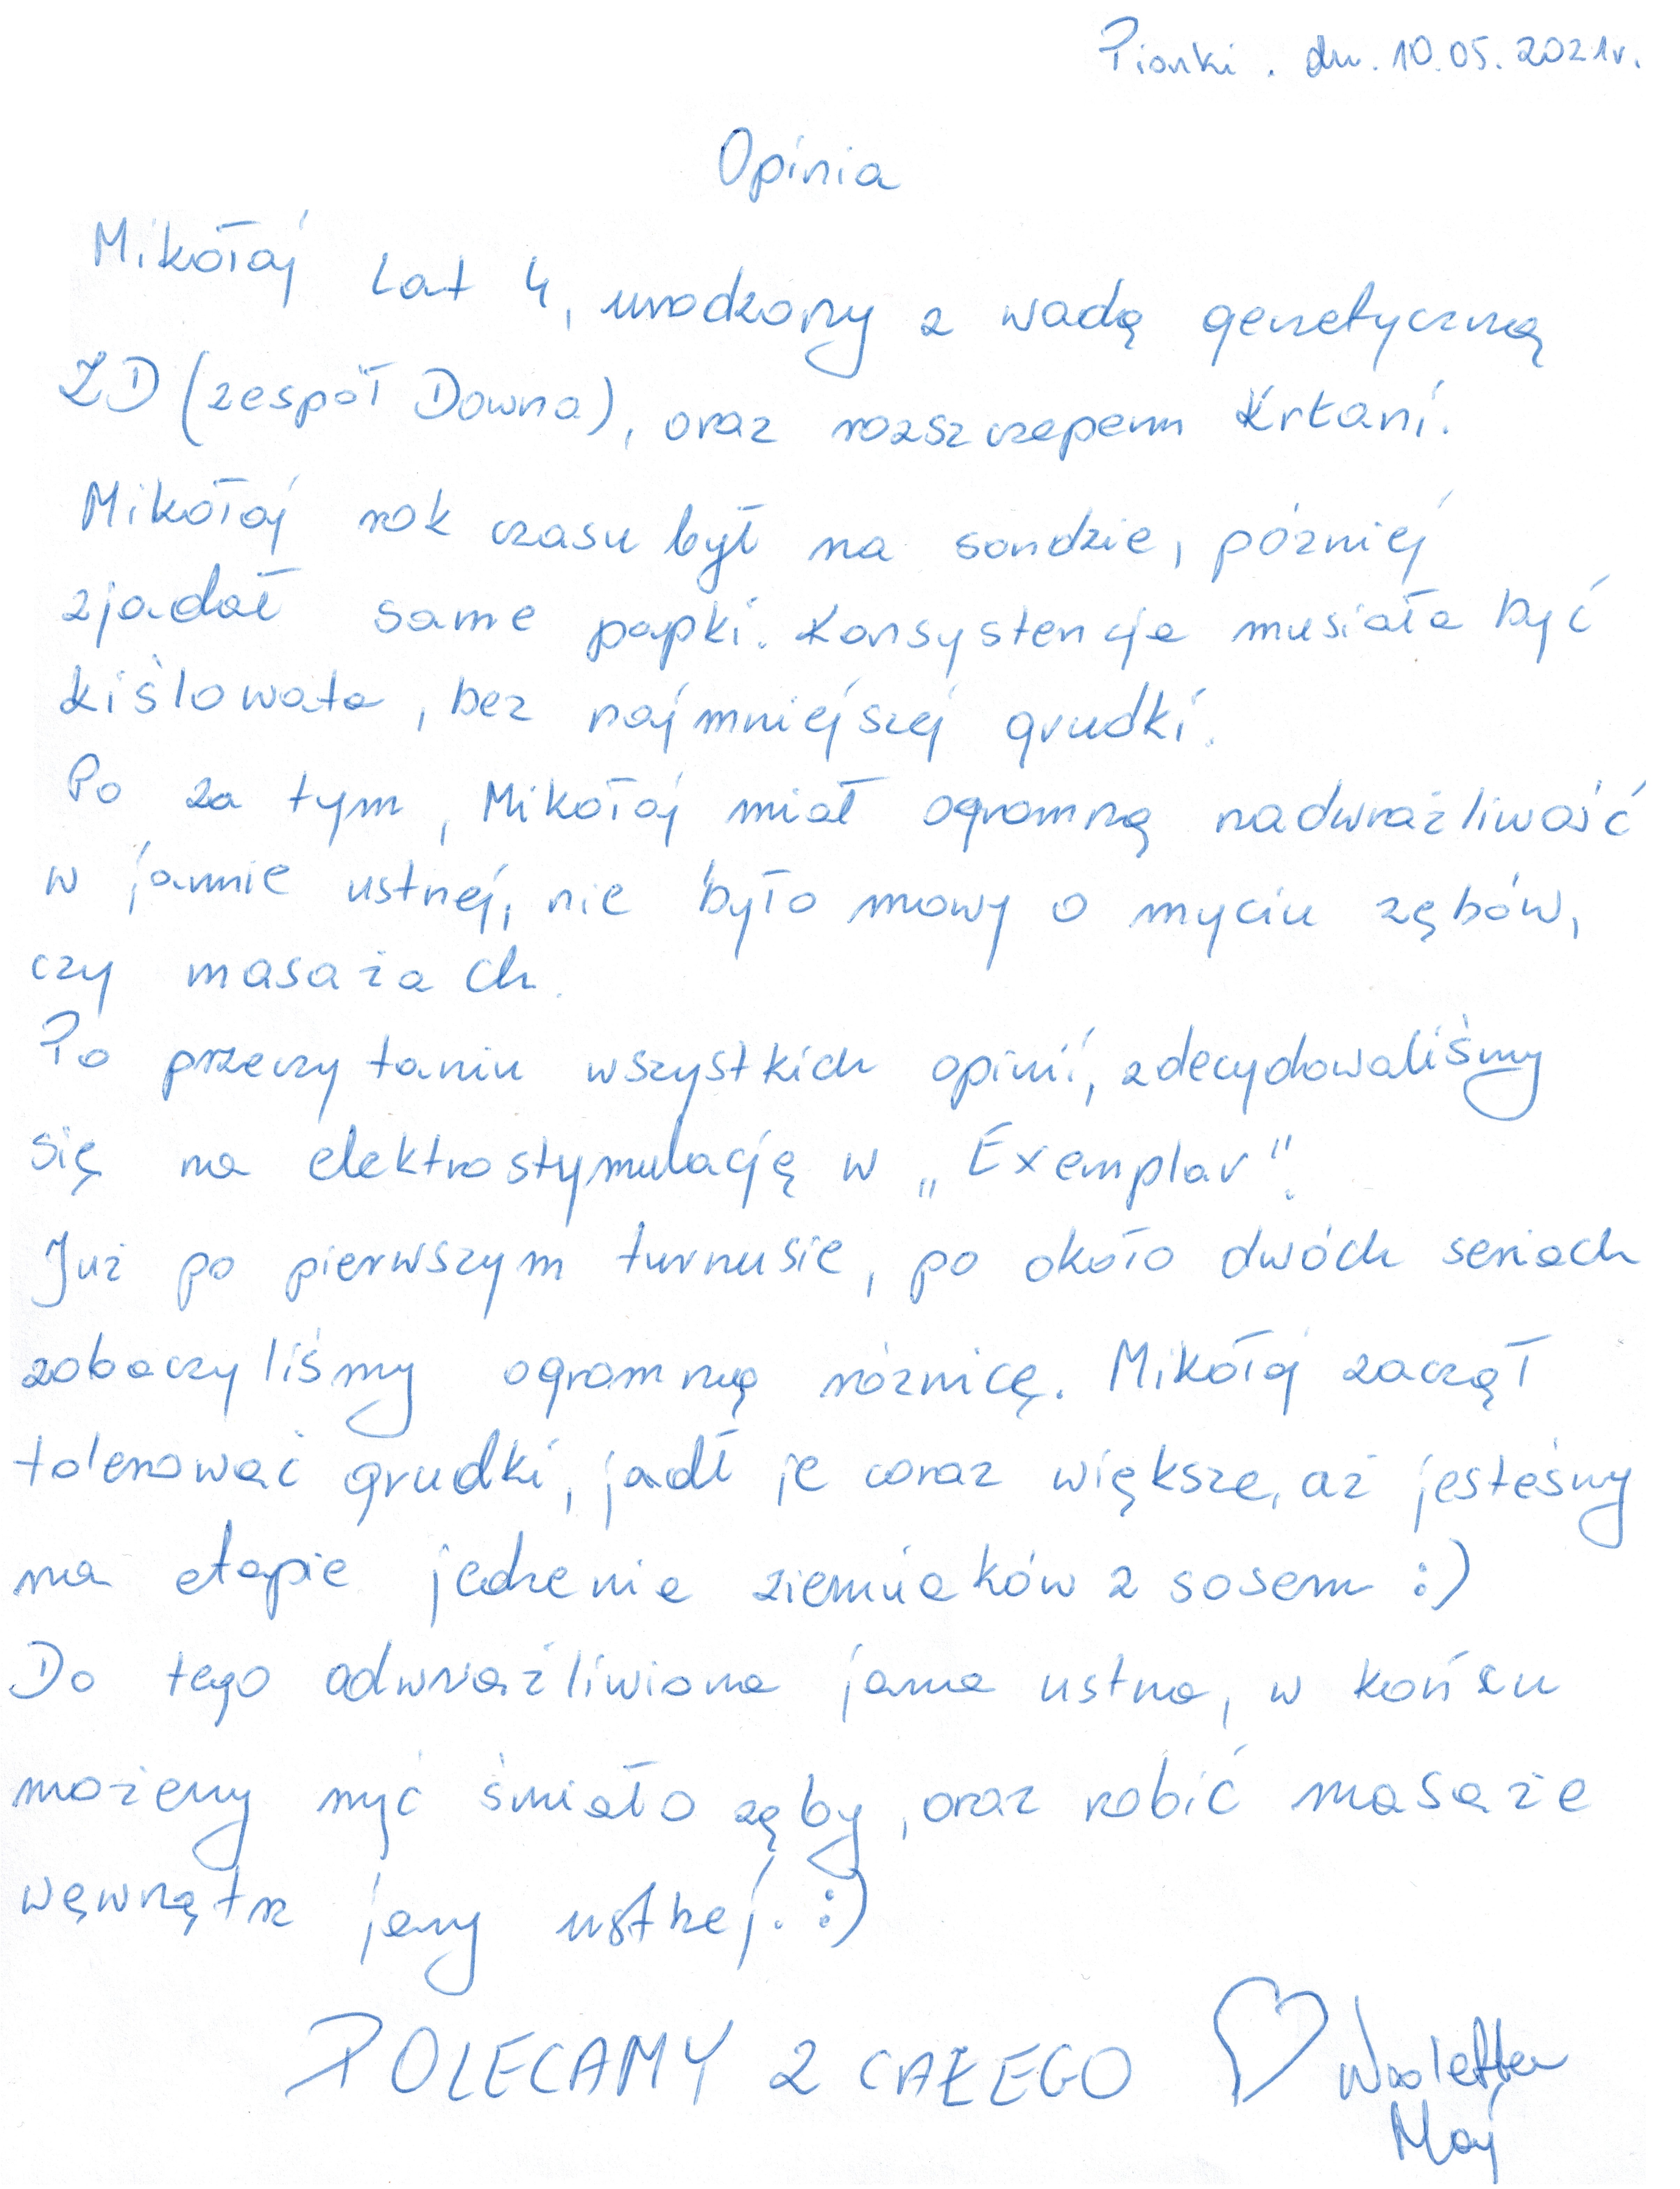 Pionki. dn. 10.05.2021r.
Opinia
Mikołaj lat 4, urodzony z wadą genetyczną
ZD (zespół Downa), oraz rozszczepem krtani.
Mikołaj rok czasu był na sondzie, pózniej
zjadał same papki. Konsystencja musiała być
kiślowata, bez najmniejszej grudki.
Po za tym, Mikołaj miał ogromną nadwrażliwość
w jamie ustnej, nie było mowy o myciu zębów,
czy masażach.
Po przeczytaniu wszystkich opinii, zdecydowaliśmy
się na elektrostymulację w „Exemplar".
Już po pierwszym turnusie, po około dwóch seriach
zobaczyliśmy ogromną różnicę. Mikołaj zaczął
tolerować grudki, jadł je coraz większe, aż jesteśmy
na etapie jedzenia ziemniaków z sosem :)
Do tego odwrażliwiona jama ustna, w końcu
możemy myć śmiało zęby, oraz robić masaże
węwnątrz jamy ustnej. :)
POLECAMY Z CAŁEGO ♡ Wioletta
Maj